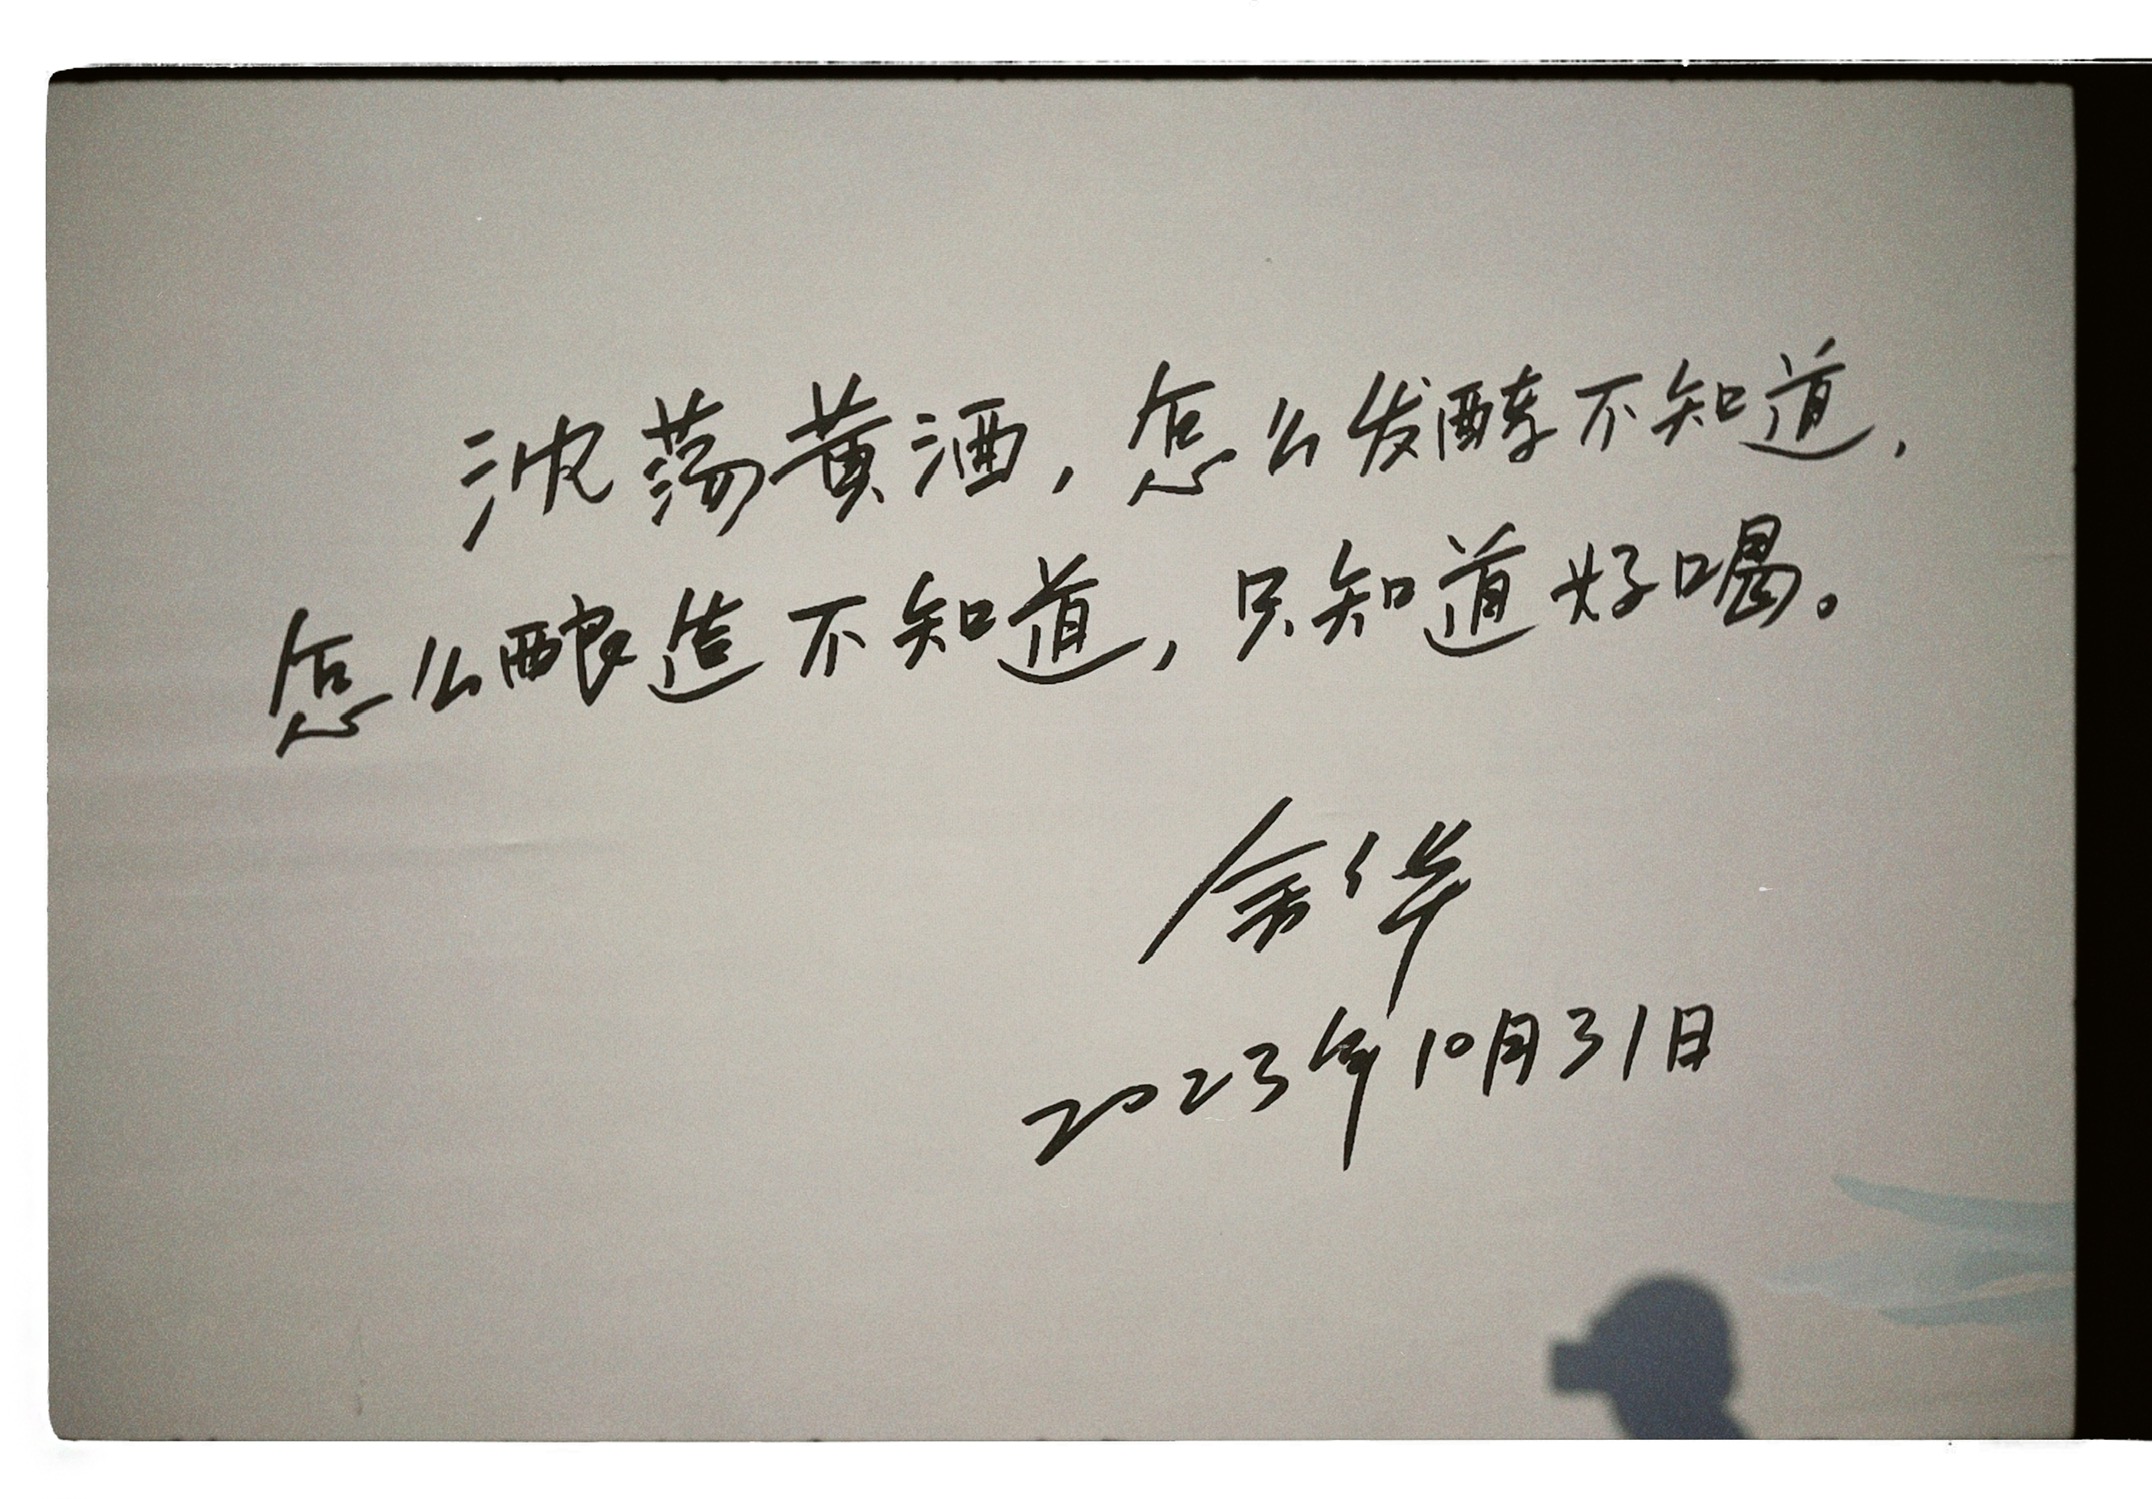 沈荡黄酒，怎么发酵不知道，
怎么酿造不知道，只知道好喝。
余华
2023年10月31日